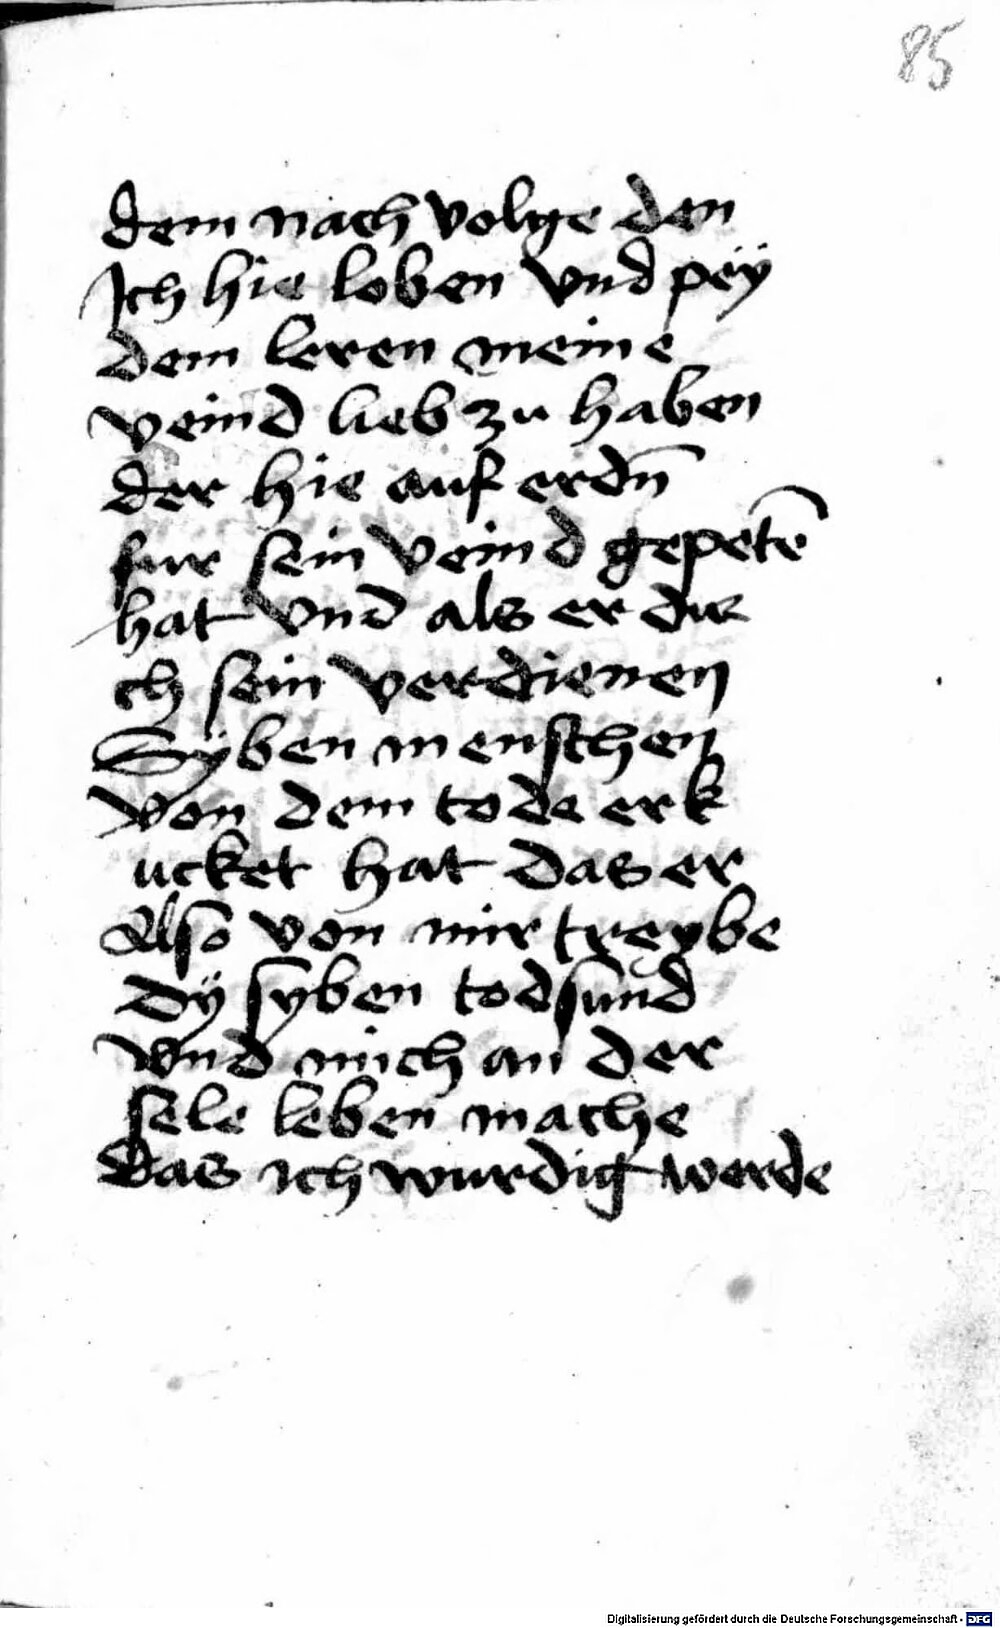 85
dem nach volge den
Ich hie loben vnd peÿ
dem leren meine
veind lieb zu haben
der hie auf erdn̄
fur sein veind gepetē
hat vnd als er dur
ch sein verdienen
Sÿben menschen
von dem tode erk
ucket hat das er
Also von mir treybe
Dÿ syben todsund
vnd mich an der
sele leben mache
Das ich wurdig werde
Digitalisierung gefördert durch die Deutsche Forschungsgemeinschaft - DFG